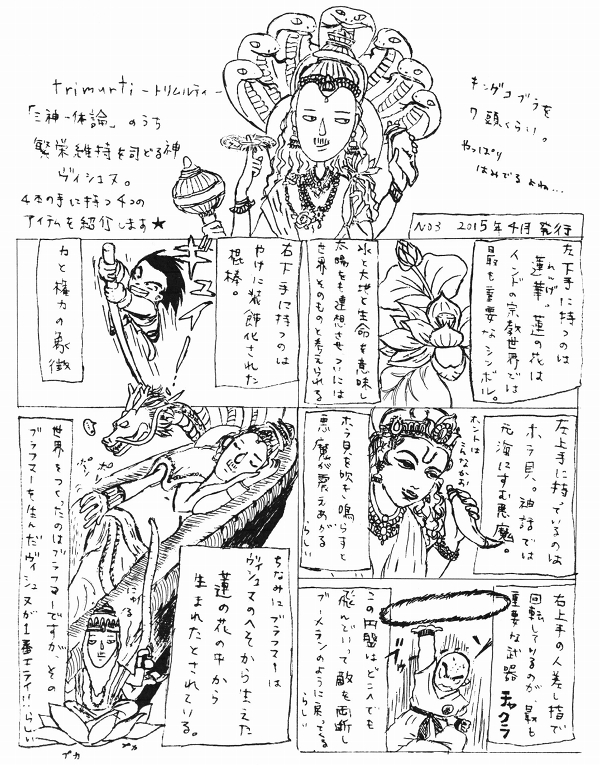 trimurti -トリムルティ-
「三神一体論」のうち
繁栄維持を司どる神
ヴィシュヌ。
4本の手に持つ4つの
アイテムを紹介します★
キングコブラを
7頭くらい。
やっぱり
はみでるよね…
NO3 2015年4月発行
左下手に持つのは
れんげ
蓮華。蓮の花は
インドの宗教世界では
最も重要なシンボル。
水と大地と生命を意味し
太陽をも連想させついには
世界そのものと考えられる
右下手に持つのは
やけに装飾化された
棍棒。
力と権力の象徴
左上手に持っているのは
ホラ貝。神話では
元海にすむ悪魔。
ホントは
こんなかお
ホラ貝を吹き鳴らすと
悪魔が震えあがる
らしい
右上手の人差し指で
回転しているのが、最も
重要な武器
チャクラ
この円盤はどこへでも
飛んでいて敵を両断し
ブーメランのように戻ってくる
らしい
ちなみにブラフマーは
ヴィシュヌのへそから生えた
蓮の花の中から
生まれたとされている。
世界をつくったのはブラフマーですが、その
ブラフマーを生んだヴィシュヌが1番エライ!!らしい
プカ
プカ